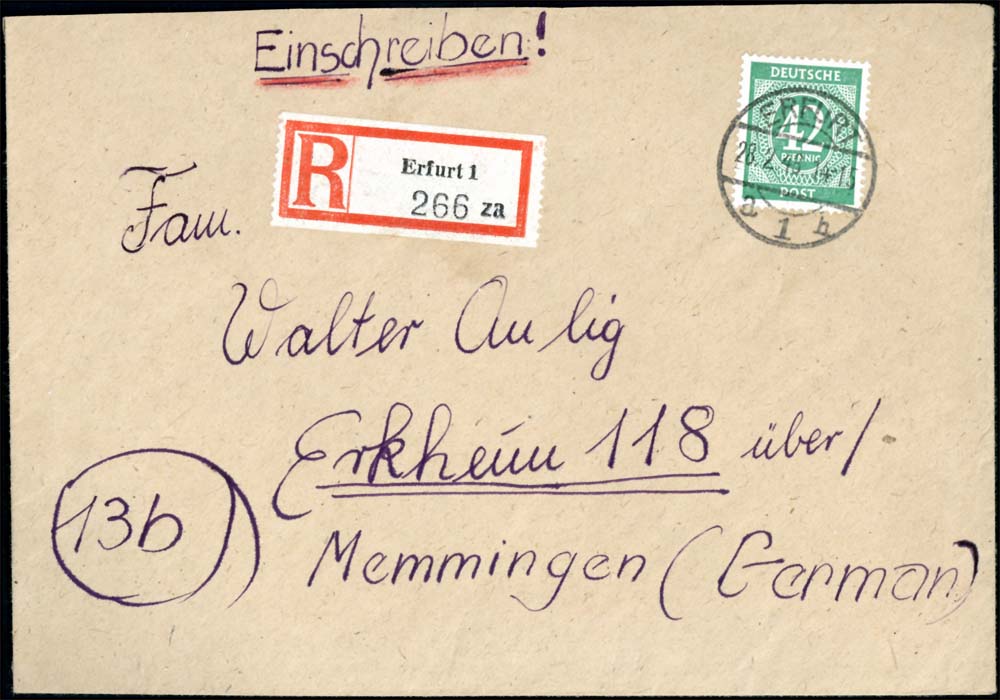 Einschreiben!
R
Erfurt 1
266 za
DEUTSCHE
42
PFENNIG
POST
ERFURT
a 1 b
Fam.
Walter Aulig
Erkheim 118 über/
13b
Memmingen (German)